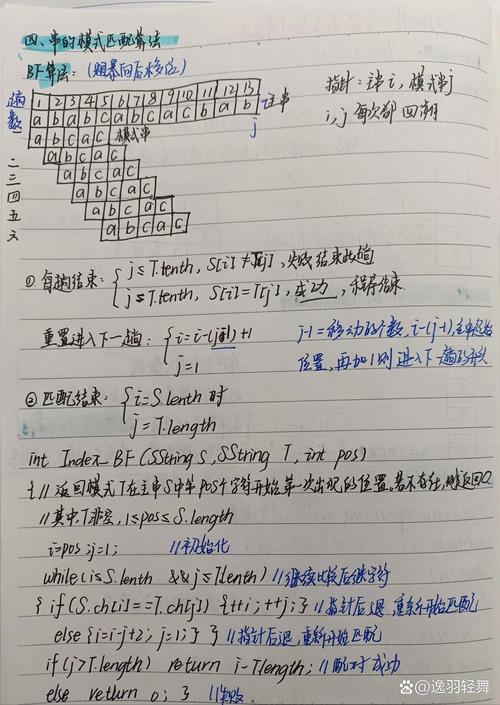 四、串的模式匹配算法
BF算法：(粗暴向后移位)
指针：主串i，模式串j
i,j每次都回溯
趟数
1 2 3 4 5 6 7 8 9 10 11 12 13
a b a b c a b c a c b a b 主串
一 a b c a c 模式串 j
二 a b c a c
三 a b c a c
四 a b c a c
五 a b c a c
六 a b c a c
① 每趟结束：{ j≤T.lenth, S[i]≠T[j], 失败结束此趟
j≤T.lenth, S[i]=T[j], 成功, 程序结束
重置进入下一趟：{ i=i-(j-1)+1
j=1
j-1=移动的个数, i-(j-1)主串起始
位置, 再加1则进入下一趟的开头
② 匹配结束：{ i=S.lenth 时
j=T.length
int Index_BF(SString S, SString T, int pos)
{ //返回模式T在主串S中第pos个字符开始第一次出现的位置。若不存在, 则返回0
//其中, T非空, 1≤pos≤S.length
i=pos; j=1; //初始化
while(i≤S.lenth && j≤T.lenth) //继续比较后继字符
{ if(S.ch[i]==T.ch[j]) {++i; ++j;} //指针后退 重新开始匹配
else {i=i-j+2; j=1;} } //指针后退, 重新开始匹配
if(j>T.length) return i-T.length; //配对成功
else return 0; } //失败.
百家号/逸羽轻舞